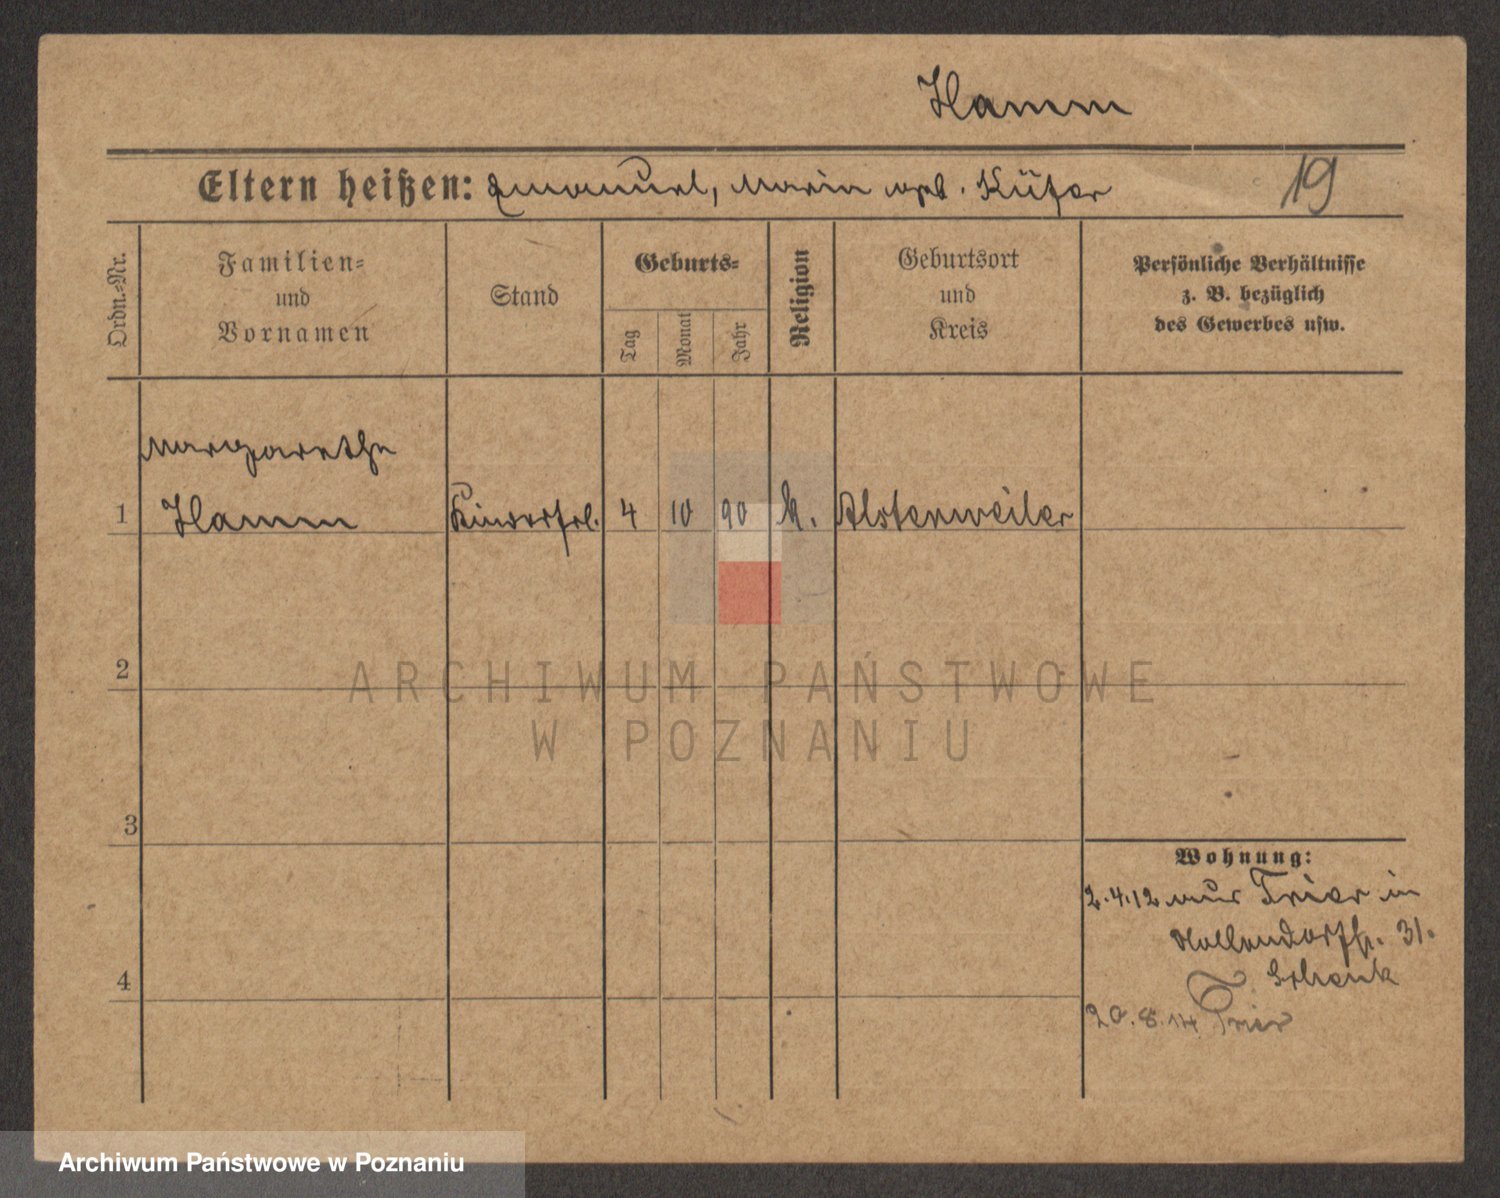 Hamm
Eltern heißen: Emanuel, Maria geb. Küfer
19
Ordn.=Nr.
Familien=
und
Vornamen
Stand
Geburts=
Tag
Monat
Jahr
Religion
Geburtsort
und
Kreis
Persönliche Verhältnisse
z. B. bezüglich
des Gewerbes usw.
Margarethe
1 Hamm Kinderfrl. 4 10 90 k. Alstenweiler
2
ARCHIWUM PAŃSTWOWE
W POZNANIU
3
Wohnung:
2.4.12 aus Trier in
Nollendorfstr. 31.
Schenk
4
20.8.14 Trier
Archiwum Państwowe w Poznaniu